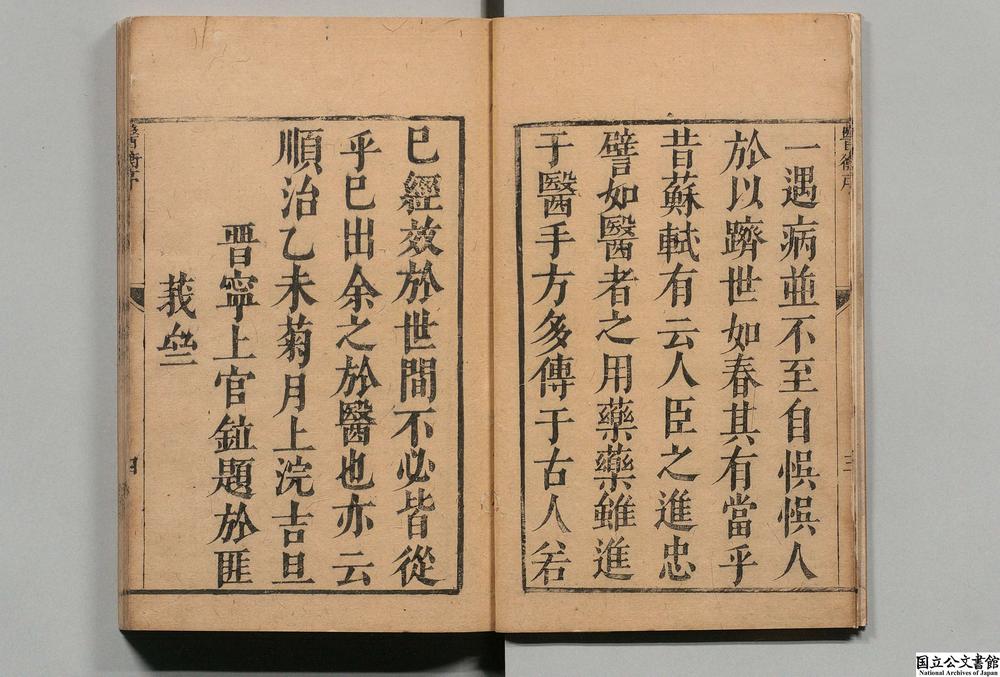 一遇病並不至自悞悞人
於以躋世如春其有當乎
昔蘇軾有云人臣之進忠
譬如醫者之用藥藥雖進
于醫手方多傳于古人若
已經效於世間不必皆從
乎已出余之於醫也亦云
順治乙未菊月上浣吉旦
晋寧上官鉝題於匪
莪
国立公文書館
National Archives of Japan